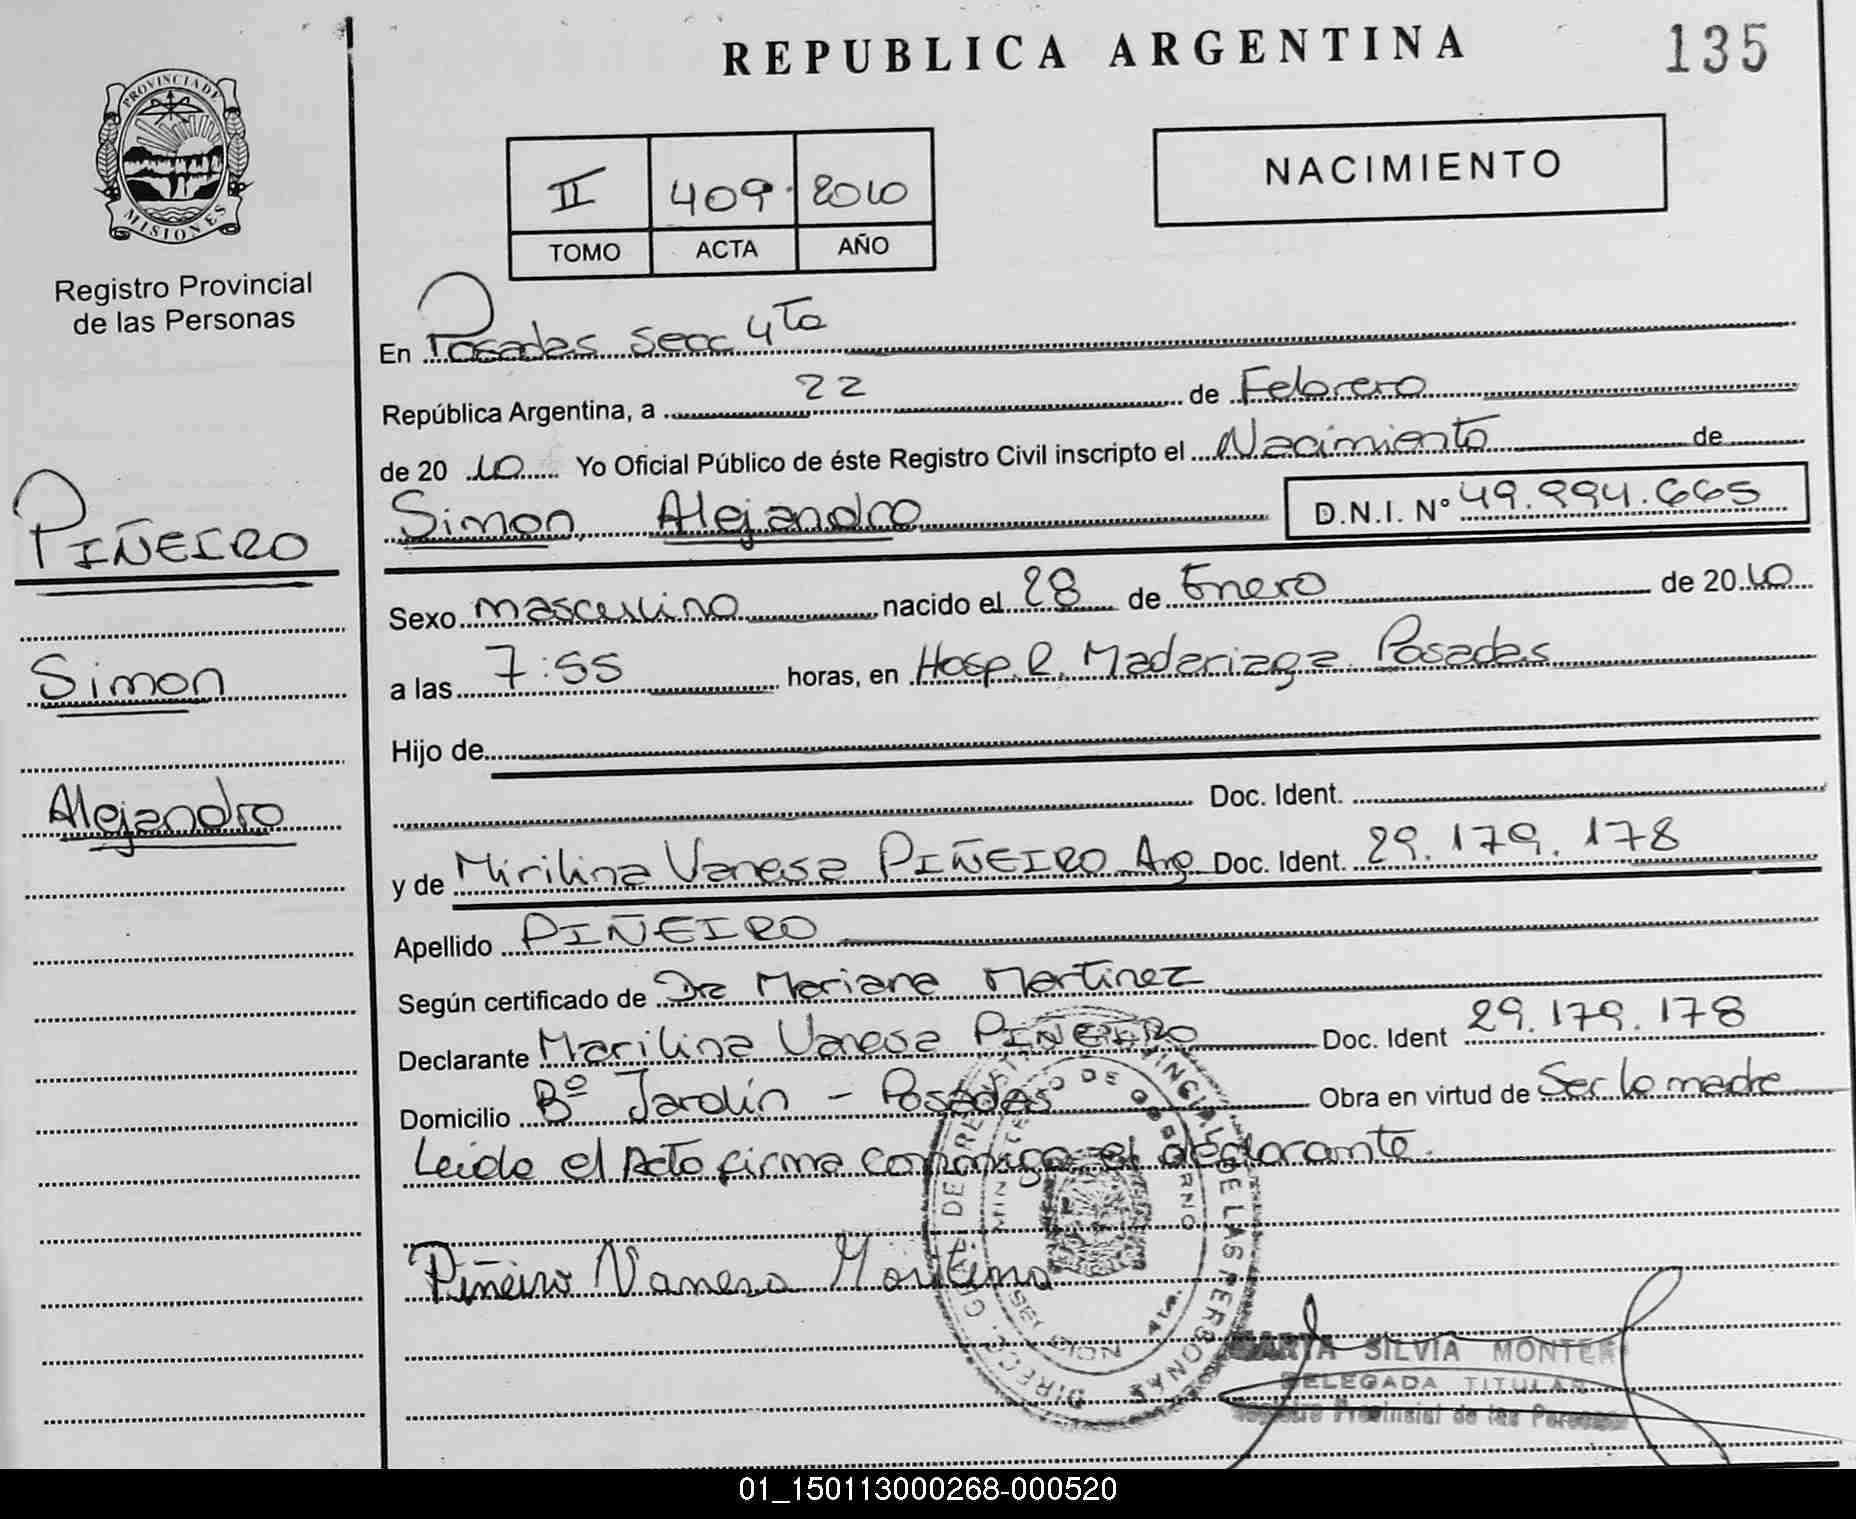 REPUBLICA ARGENTINA
135
PROVINCIA DE
MISIONES
Registro Provincial
de las Personas
II 409 2010
TOMO ACTA AÑO
NACIMIENTO
En Posadas secc 4Ta
República Argentina, a 22 de Febrero
de 20 10 Yo Oficial Público de éste Registro Civil inscripto el Nacimiento de
Simon, Alejandro D.N.I. Nº 49.994.665
PIÑEIRO
Simon
Alejandro
Sexo masculino nacido el 28 de Enero de 20 10
a las 7:55 horas, en Hosp. R. Madariaga Posadas
Hijo de
Doc. Ident.
y de Mirilina Vanesa PIÑEIRO Arg Doc. Ident. 29.179.178
Apellido PIÑEIRO
Según certificado de Dra Mariana Martinez
Declarante Marilina Vanesa PIÑEIRO Doc. Ident 29.179.178
Domicilio Bº Jardín - Posadas Obra en virtud de Ser la madre
Leido el Acto firma conmigo el declarante.
Piñeiro Vanesa Marilina
MINISTERIO DE GOBIERNO
DE LAS PERSONAS
MARTA SILVIA MONTER
DELEGADA TITULAR
Registro Provincial de las Personas
01_150113000268-000520